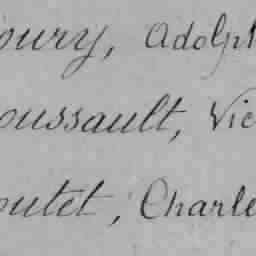 oury, Adolph
oussault, Vic
outet, Charle